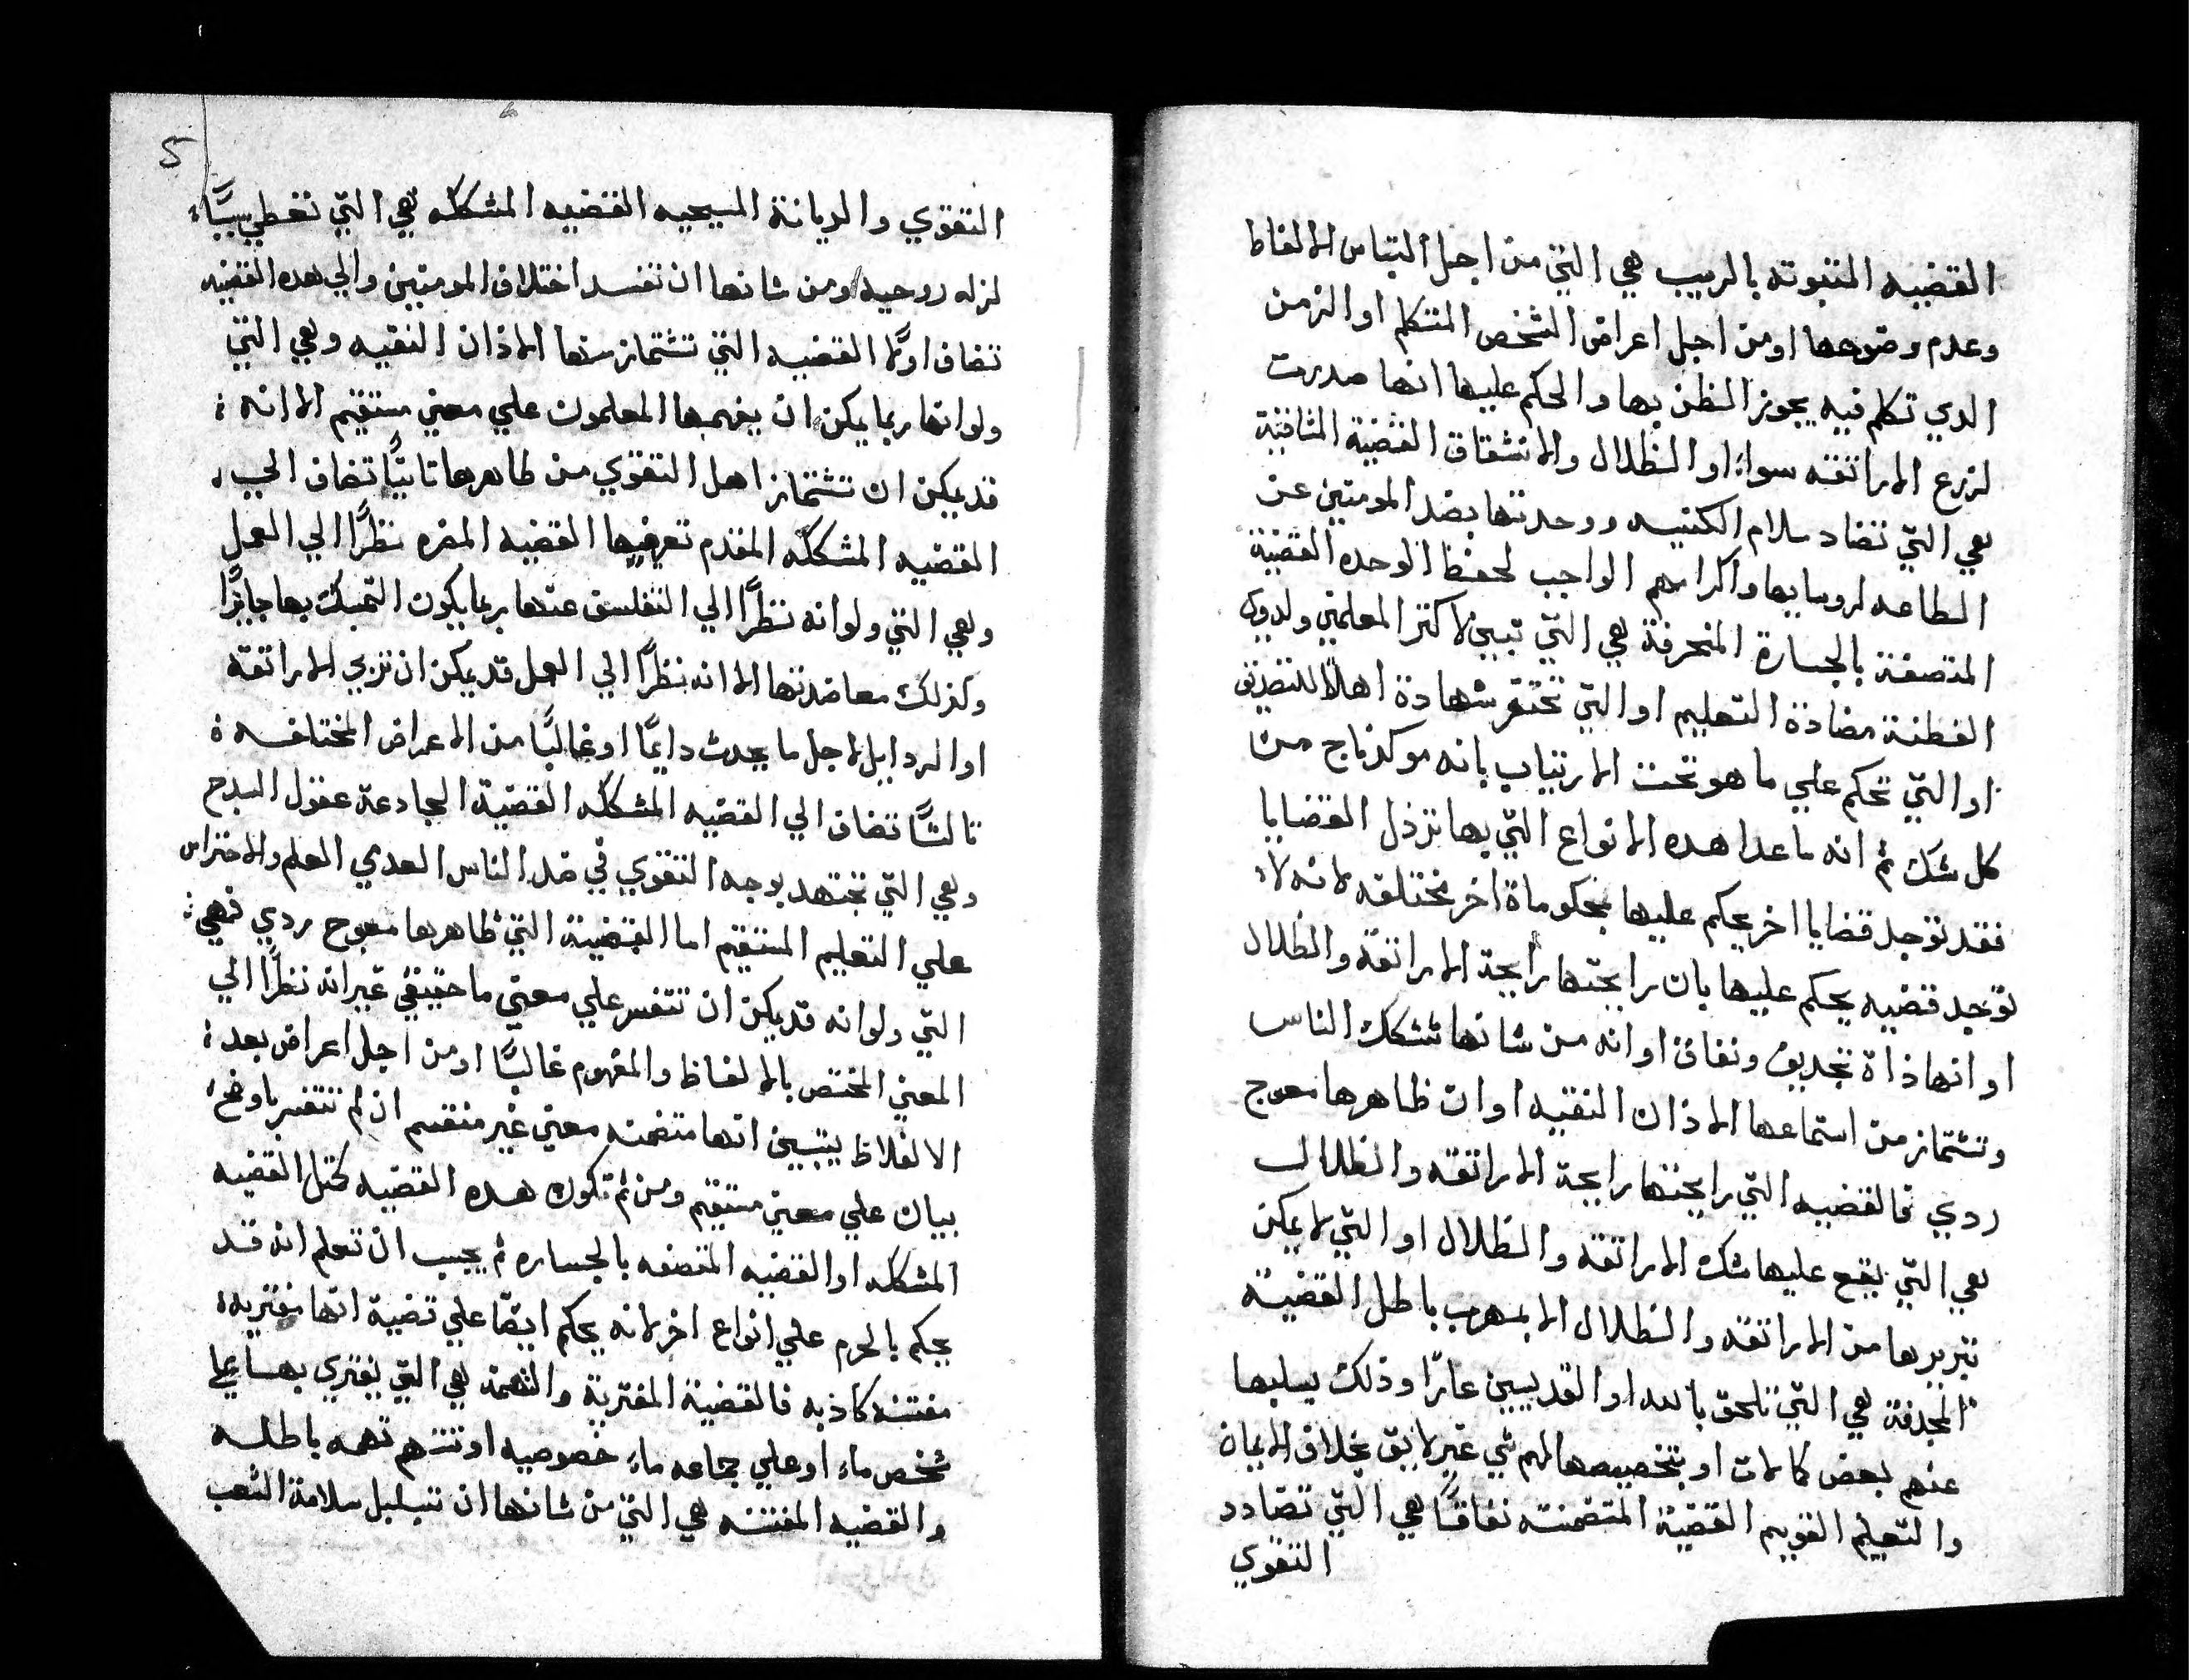 القضيه المتبوته بالريب هي التي من اجل التباس الالفاظ
وعدم وضوعها اومن اجل اعراض الشخص المتكلم او الزمن
الدي تكلم فيه يجوز الظن بها والحكم عليها انها صدرت
لزرع الاراتقه سواء او الظلال والانشقاق القضية المنافية
هي التي تضاد سلام الكنيسه ووحدتها بضد المومنين عن
الطاعه لروسايها واكرامهم الواجب لحفظ الوحده القضية
المتصفة بالجسارة المنحرفة هي التي تبين لاكثر المعلمين ولدوي
الفطنة مضادة التعليم او التي تحتقر شهادة اهلا للتصديق
او التي تحكم علي ما هو تحت الارتياب بانه موكد ناج من
كل شك ثم انه ماعدا هده الانواع التي بها ترذل القضايا
فقد توجد قضايا اخر يحكم عليها بحكوماة اخر مختلفه لانه
توجد قضيه يحكم عليها بان رايحتها رايحة الاراتقة والظلال
او انها ذاة تجديف ونفاق او انه من شانها تشكك الناس
وتشتماز من استماعها الاذان النقيه او ان ظاهرها معوج
ردي فالقضيه التي رايحتها رايحة الاراتقه والظلال
هي التي يقع عليها شك الاراتقه والظلال او التي لا يمكن
تبريرها من الاراتقه والظلال الا بمهرب باطل القضية
المجدفة هي التي تلحق بالله او القديسين عارًا وذلك بسلبها
عنهم بعض كمالات او بتخصيصها لهم شي غير لايق بخلاف الايمان
والتعليم القويم القضية المتضمنته نفاقًا هي التي تضادد
التقوي
5
التقوي والديانة المسيحيه القضيه المشككه هي التي تعطي سببًا
لزله روحيه ومن شانها ان تفسد اختلاف المومنين والي هده القضيه
تضاف اولًا القضيه التي تشتماز منها الاذان النقيه وهي التي
ولو انها ربما يمكن ان يفهمها المعلمون علي معني مستقيم الا انه
قد يمكن ان تشتماز اهل التقوي من ظاهرها تانيًا تضاف الي
القضيه المشككه المقدم تعريفها القضيه المضره نظرًا الي العمل
وهي التي ولو انه نظرًا الي التفلسف عنها ربما يكون التمسك بها جايزًا
وكذلك معاضدتها الا انه نظرًا الي العمل قد يمكن ان تربي الاراتقة
او الردايل لاجل ما يحدث دايمًا او غالبًا من الاعراض المختلفه
تالتًا تضاف الي القضيه المشككه القضية الخادعة عقول السدج
وهي التي تجتهد بوجه التقوي في ضد الناس العدمي العلم والاحتراس
علي التعليم المستقيم اما القضية التي ظاهرها معوج ردي فهي
التي ولو انه قد يمكن ان تتفسر علي معني ما حقيقي غير انه نظرًا الي
المعني المختص بالالفاظ والمفهوم غالبًا اومن اجل اعراض بعد
الالفاظ يتبين انها متضمنه معني غير مستقيم ان لم تتفسر باوضح
بيان علي معني مستقيم ومن ثم تكون هده القضيه كمتل القضيه
المشككه او القضيه المتصفه بالجساره ثم يجب ان تعلم انه قد
يحكم بالحرم علي انواع اخر لانه يحكم ايضًا علي قضية انها مفتريه
مفتنه كاذبه فالقضية المفترية والتهمة هي التي يفتري بها علي
شخص ماء او علي جماعه ماء خصوصيه او تتهم تهمه باطله
والقضيه المفتنه هي التي من شانها ان تبلبل سلامة الشعب